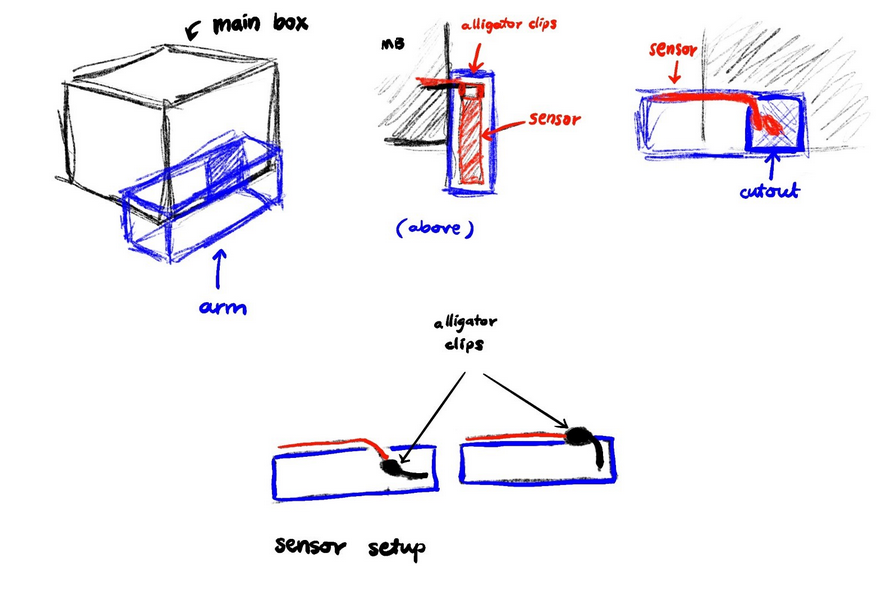 main box
alligator clips
MB
sensor
(above)
sensor
cutout
arm
alligator
clips
sensor setup